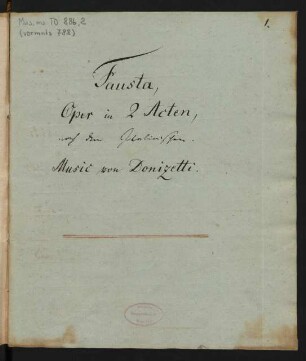 Mus. ms. TO 886,2
(vormals 788)
1.
Fausta,
Oper in 2 Acten,
nach dem Italienischen.
Music von Donizetti.